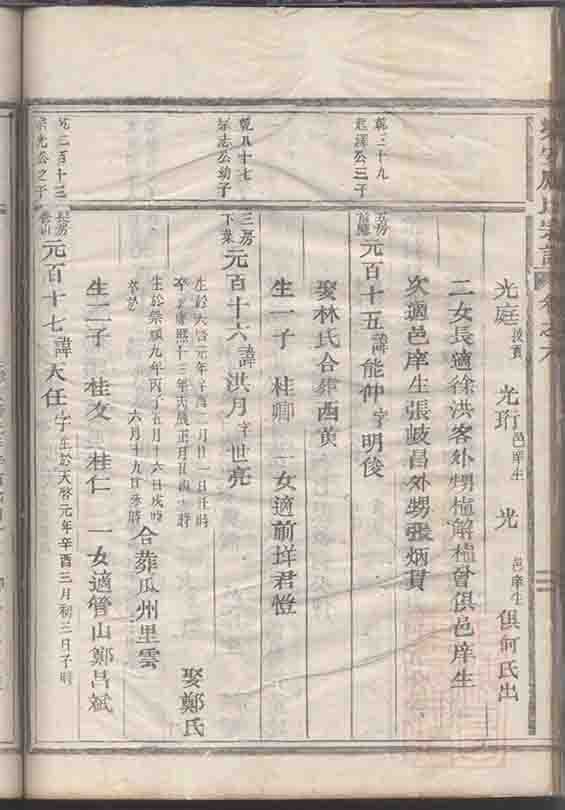 光庭 光珩邑庠生 光 邑庠生 俱何氏出
二女長適徐洪客外甥植解植曾俱邑庠生
次適邑庠生張岐昌外甥張炳貫
乾三十九
公三子
元百十五諱能仲字明俊
娶林氏合葬西黃
生一子 桂卿 一女適前垟君愷
乾八十七
志公幼子
三房
下葉
元百十六諱洪月字世亮
生於天啓元年辛酉二月 一日 時
康熙十三年 正月 時
娶鄭氏
生於崇禎九年丙子五月十六日戌時
六月十九日 時
合葬瓜州里雲
生二子 桂友 桂仁 一女適管山鄭昌斌
二百十三
光公之子
長房
元百十七諱天任字 生於天啓元年辛酉三月初三日子時